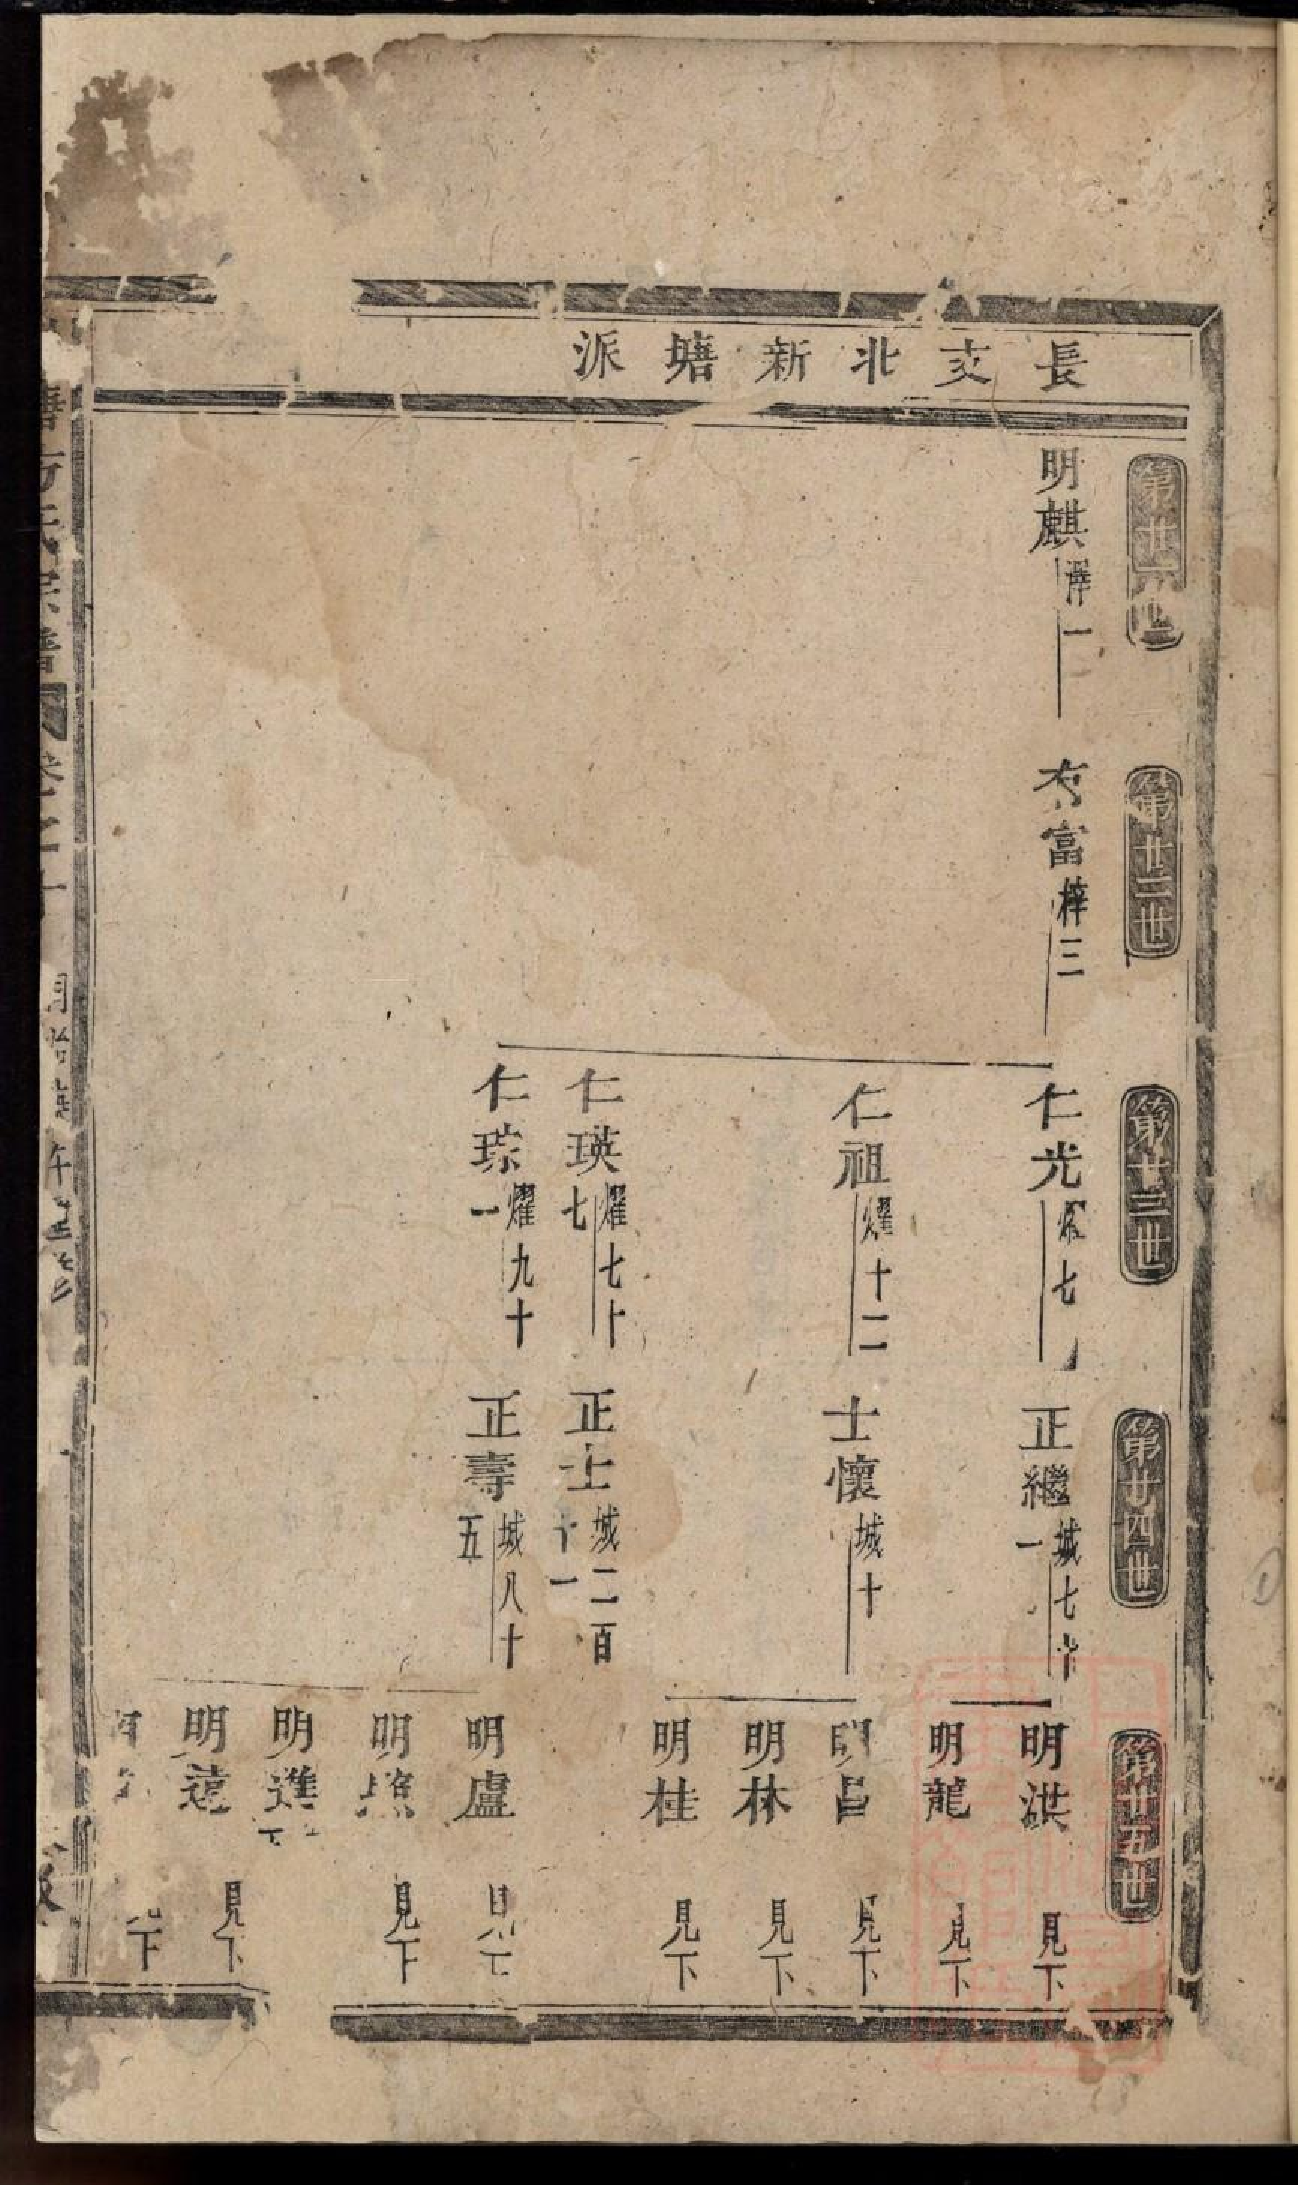 長支北新塘派
第廿一世
明麒
一
第廿二世
富梓三
第廿三世
仁光 七
仁祖耀十二
仁瑛耀七十七
仁琮耀九十一
第廿四世
正繼城七十一
士懷城十
正士城二百十一
正壽城八十五
第廿五世
明洪 見下
明龍 見下
明昌 見下
明林 見下
明桂 見下
明盧 見下
明 見下
明進
明遠 見下
下
氏宗譜 卷之